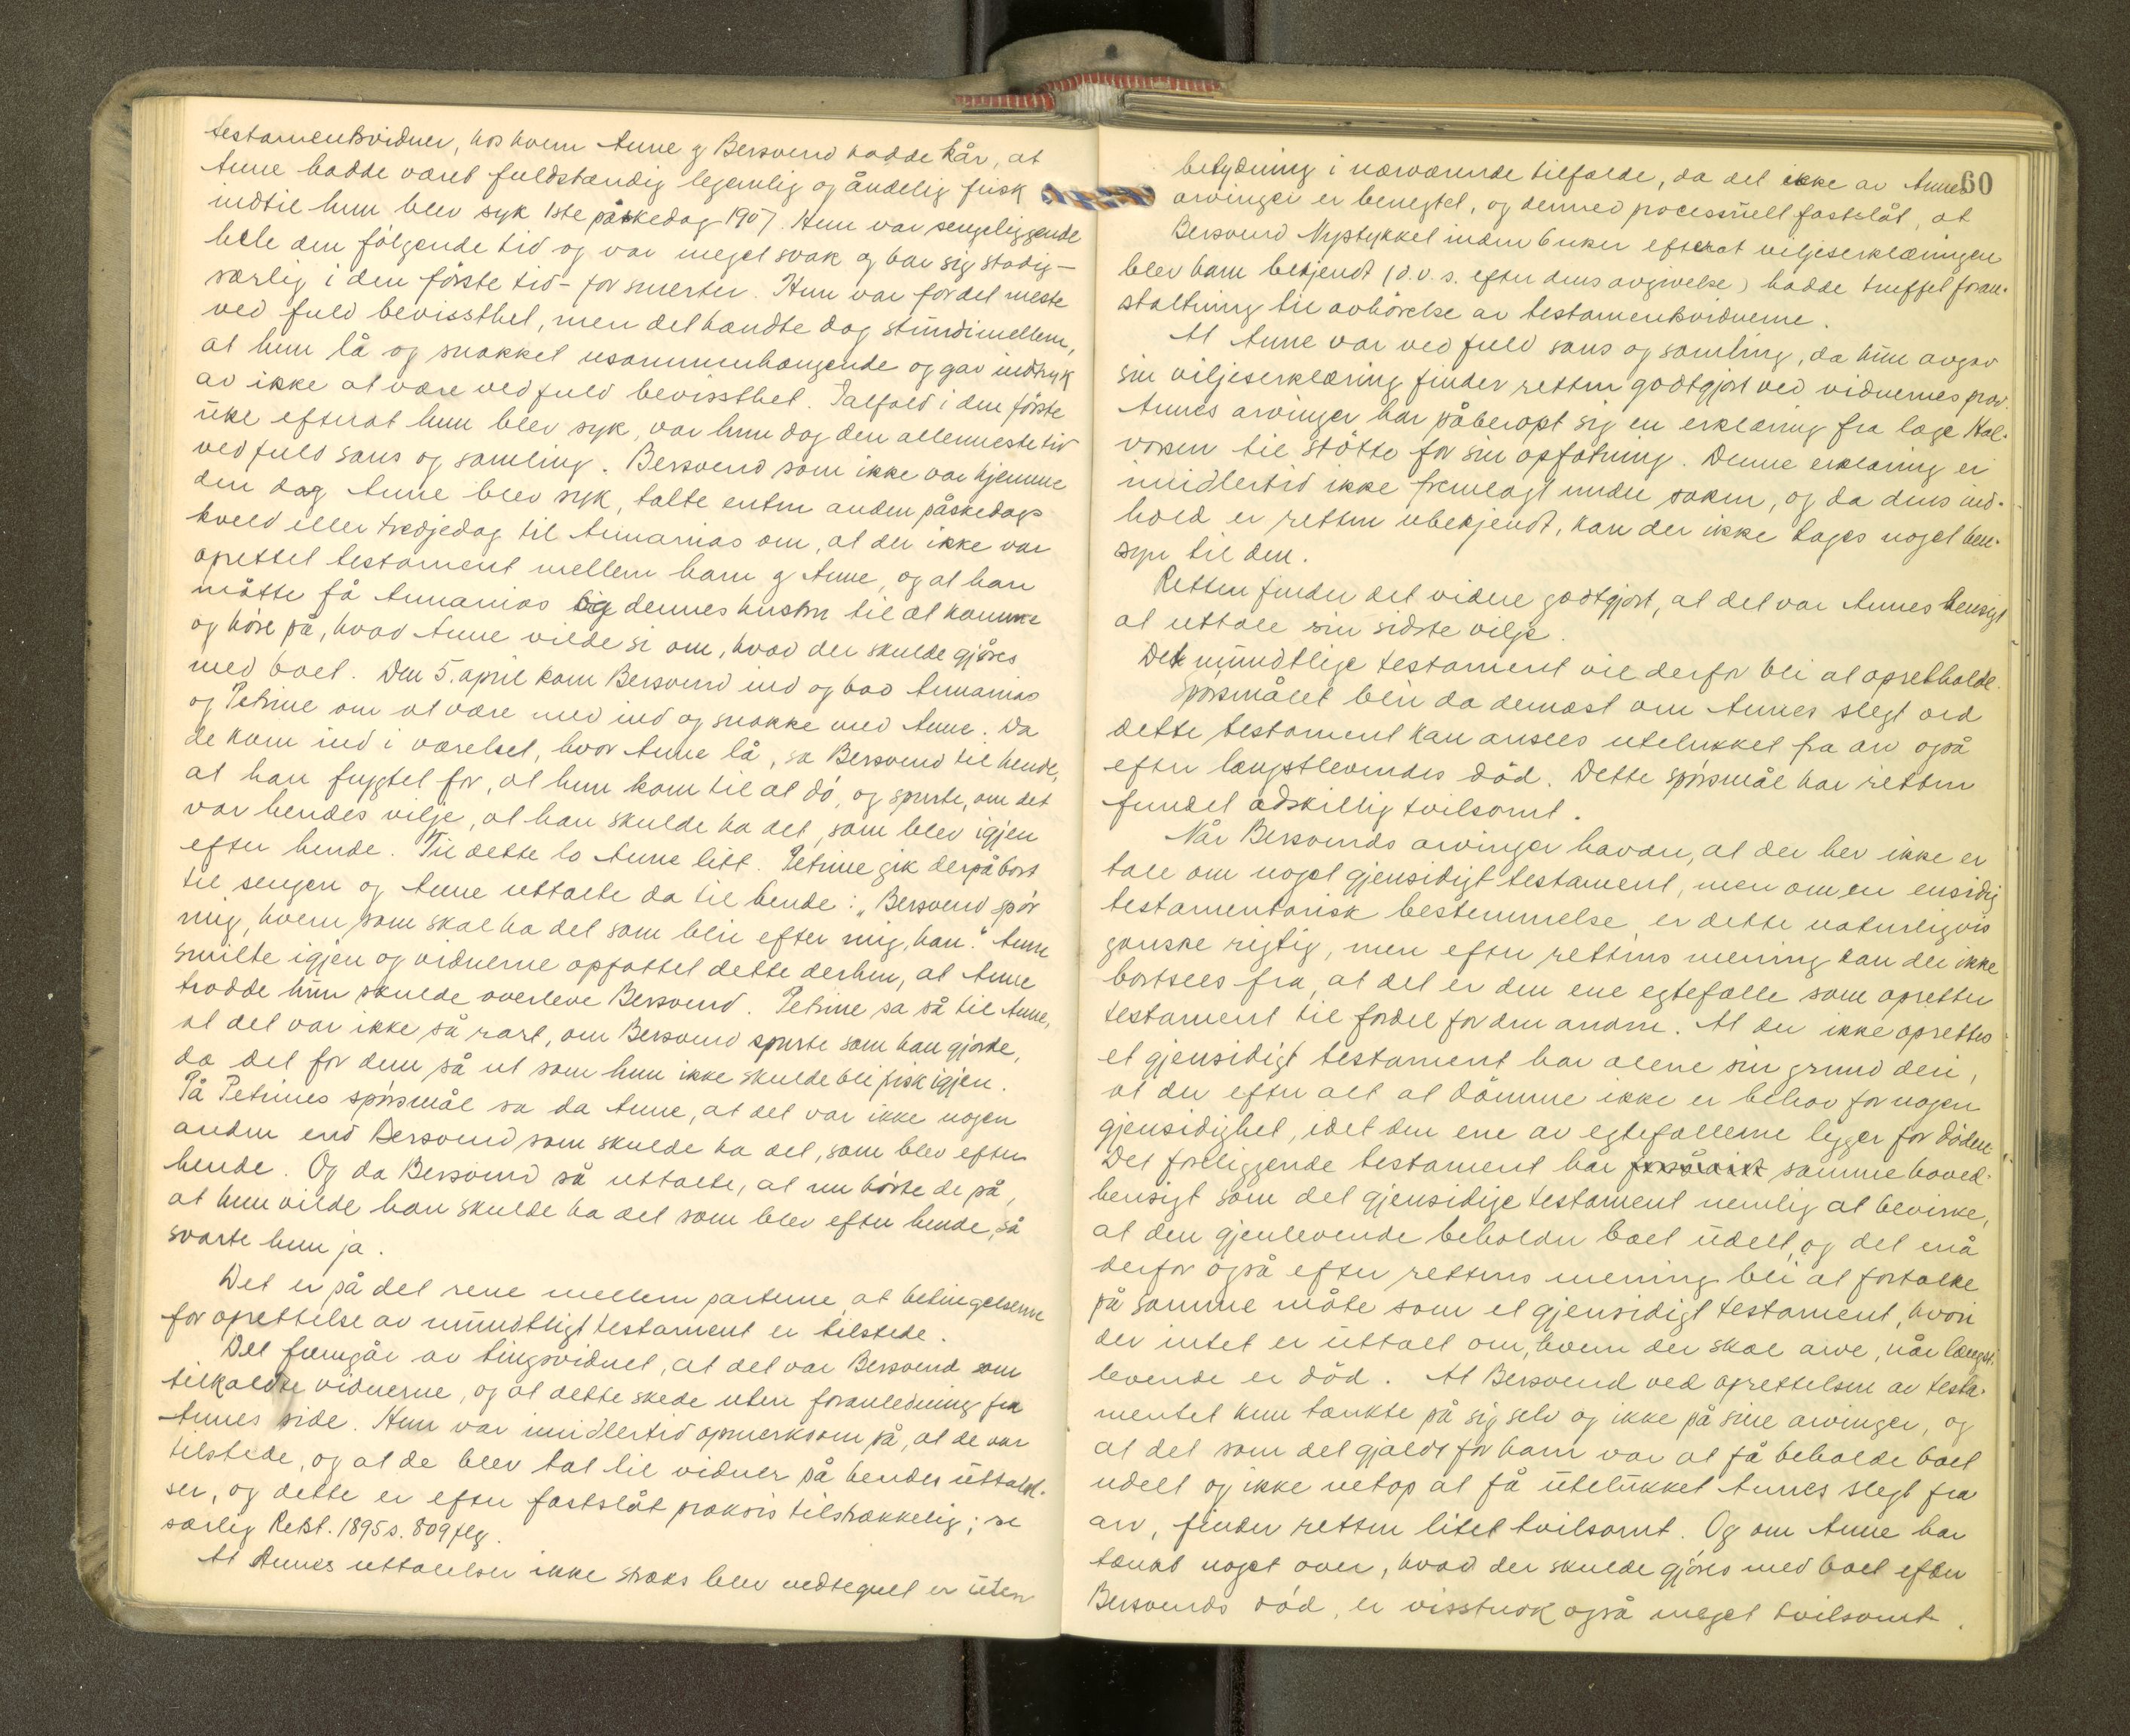 testamentsvidner, hos hvem Anne og Bersvend hadde kår, at
Anne hadde været fuldstændig legemlig og åndelig frisk
indtil hun blev syk 1ste påskedag 1907. Hun var sengeliggende
hele den følgende tid og var meget svak og bar sig stadig –
særlig i den første tid – for smerter. Hun var for det meste
ved fuld bevissthet, men det hændte dog stundimellem,
at hun lå og snakket usammenhængende og gav indtryk
av ikke at være ved fuld bevissthet. Ialfald i den første
uke efterat hun blev syk, var hun dog den allermeste tid
ved fuld sans og samling. Bersvend som ikke var hjemme
den dag Anne blev syk, talte enten anden påskedags
kveld eller tredjedag til Annanias om, at der ikke var
oprettet testament mellem ham og Anne, og at han
måtte få Annanias og dennes hustru til at komme
og høre på, hvad Anne vilde si om, hvad der skulde gjøres
med boet. Den 5. april kom Bersvend ind og bad Annanias
og Petrine om at være med ind og snakke med Anne. Da
de kom ind i værelset, hvor Anne lå, sa Bersvend til hende,
at han frygtet for, at hun kom til at dø, og spurte, om det
var hendes vilje, at han skulde ha det, som blev igjen
efter hende. Til dette lo Anne litt. Petrine gik derpå bort
til sengen og Anne uttalte da til hende: „Bersvend spør
mig, hvem som skal ha det som blir efter mig, han." Anne
smilte igjen og vidnerne opfattet dette derhen, at Anne
trodde hun skulde overleve Bersvend. Petrine sa så til Anne,
at det var ikke så rart, om Bersvend spurte som han gjorde,
da det for dem så ut som hun ikke skulde bli frisk igjen.
På Petrines spørsmål sa da Anne, at det var ikke nogen
anden end Bersvend som skulde ha det, som blev efter
hende. Og da Bersvend så uttalte, at nu hørte de på,
at hun vilde han skulde ha det som blev efter hende, så
svarte hun ja.
Det er på det rene mellem parterne at betingelserne
for oprettelse av mundtligt testament er tilstede.
Det fremgår av tingsvidnet, at det var Bersvend som
tilkaldte vidnerne, og at dette skede uten foranledning fra
Annes side. Hun var imidlertid opmerksom på, at de var
tilstede, og at de blev tat til vidner på hendes uttalel-
ser, og dette er efter fastslåt praksis tilstrækkelig; se
særlig Retst. 1895 s. 809 flg.
At Annes uttalelser ikke straks blev nedtegnet er uten
60
betydning i nærværende tilfælde, da det ikke av Annes
arvinger er benegtet, og dermed processuelt fastslåt, at
Bersvend Nystykket inden 6 uker efterat viljeserklæringen
blev ham bekjendt (d.v.s. efter dens avgivelse) hadde truffet foran-
staltning til avhørelse av testamentsvidnerne.
At Anne var ved fuld sans og samling, da hun avgav
sin viljeserklæring finder retten godtgjort ved vidnernes prov.
Annes arvinger har påberopt sig en erklæring fra læge Hal-
vorsen til støtte for sin opfatning. Denne erklæring er
imidlertid ikke fremlagt under saken, og da dens ind-
hold er retten ubekjendt, kan der ikke tages noget hen-
syn til den.
Retten finder det videre godtgjort, at det var Annes hensigt
at uttale sin sidste vilje.
Det mundtlige testament vil derfor bli at opretholde.
Spørsmålet blir da dernæst om Annes slegt ved
dette testament kan ansees utelukket fra arv også
efter længstlevendes død. Dette spørsmål har retten
fundet adskillig tvilsomt.
Når Bersvends arvinger hævder, at der her ikke er
tale om noget gjensidigt testament, men om en ensidig
testamentarisk bestemmelse er dette naturligvis
ganske rigtig, men efter rettens mening kan der ikke
bortsees fra, at det er den ene egtefælle som opretter
testament til fordel for den anden. At der ikke oprettes
et gjensidigt testament har alene sin grund deri,
at der efter alt at dømme ikke er behov for nogen
gjensidighet, idet den ene av egtefællerne ligger for døden.
Det foreliggende testament har forsåvidt samme hoved-
hensigt som det gjensidige testament nemlig at bevirke,
at den gjenlevende beholder boet udelt, og det må
derfor også efter rettens mening bli at fortolke
på samme måte som et gjensidigt testament, hvori
der intet er uttalt om, hvem der skal arve, når længst-
levende er død. At Bersvend ved oprettelsen av testa-
mentet kun tænkte på sig selv og ikke på sine arvinger, og
at det som det gjaldt for ham var at få beholde boet
udelt og ikke netop at få utelukket Annes slegt fra
arv, finder retten litet tvilsomt. Og om Anne har
tænkt noget over, hvad der skulde gjøres med boet efter
Bersvends død, er visstnok også meget tvilsomt.